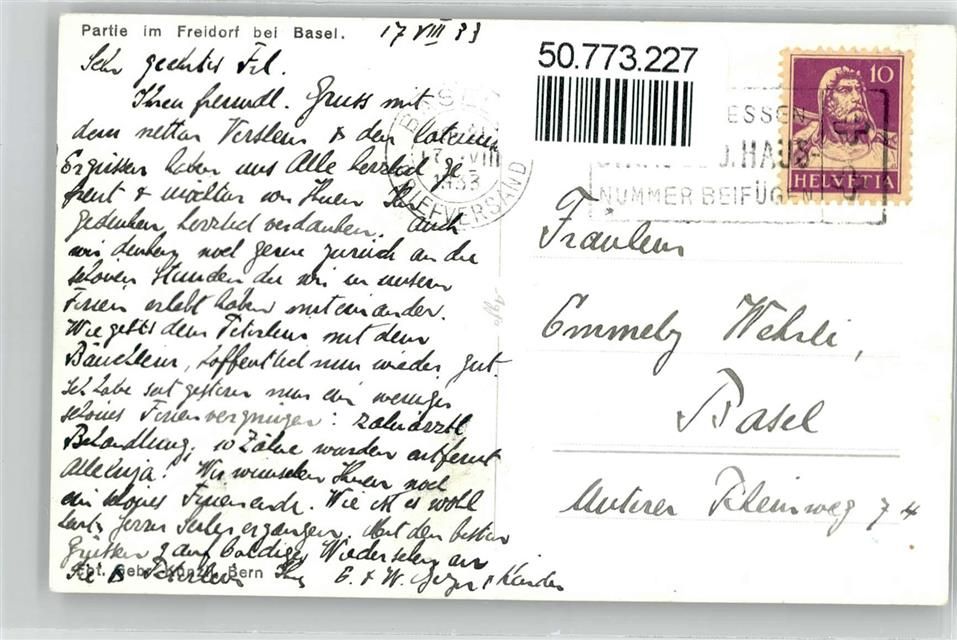 Partie im Freidorf bei Basel. 17 VIII 33
Sehr geehrtes Frl.
Ihren freundl. Gruss mit
dem netten Verslein & den
haben uns Alle herzlich ge
freut & möchten wir Ihnen Ihr
gedenken, herzlich verdanken. Auch
wir denken noch gerne zurück an die
schönen Stunden die wir in unsern
Ferien erlebt haben miteinander.
Wie gehts dem Peterlein mit dem
Bäuchlein, hoffentlich nun wieder gut.
Ich habe seit gestern nun ein weniger
schönes Ferienvergnügen: zahnärztl.
Behandlung, 10 Zähne wurden entfernt
Alleluja! Wir wünschen Ihnen noch
ein schönes Ferienende. Wie ist es wohl
Herrn ergangen. Mit den besten
Grüssen & auf baldiges Wiedersehen an
Sie & Peterlein Ihre E. & W. & Kinder
Gebr. Künzli, Bern
50.773.227
BASEL
17. VIII
1933
BRIEFVERSAND
ESSEN
HAUS-
NUMMER BEIFÜGEN
10
HELVETIA
Agfa
Fräulein
Emmely Wehrli,
Basel
Unterer Rheinweg 74